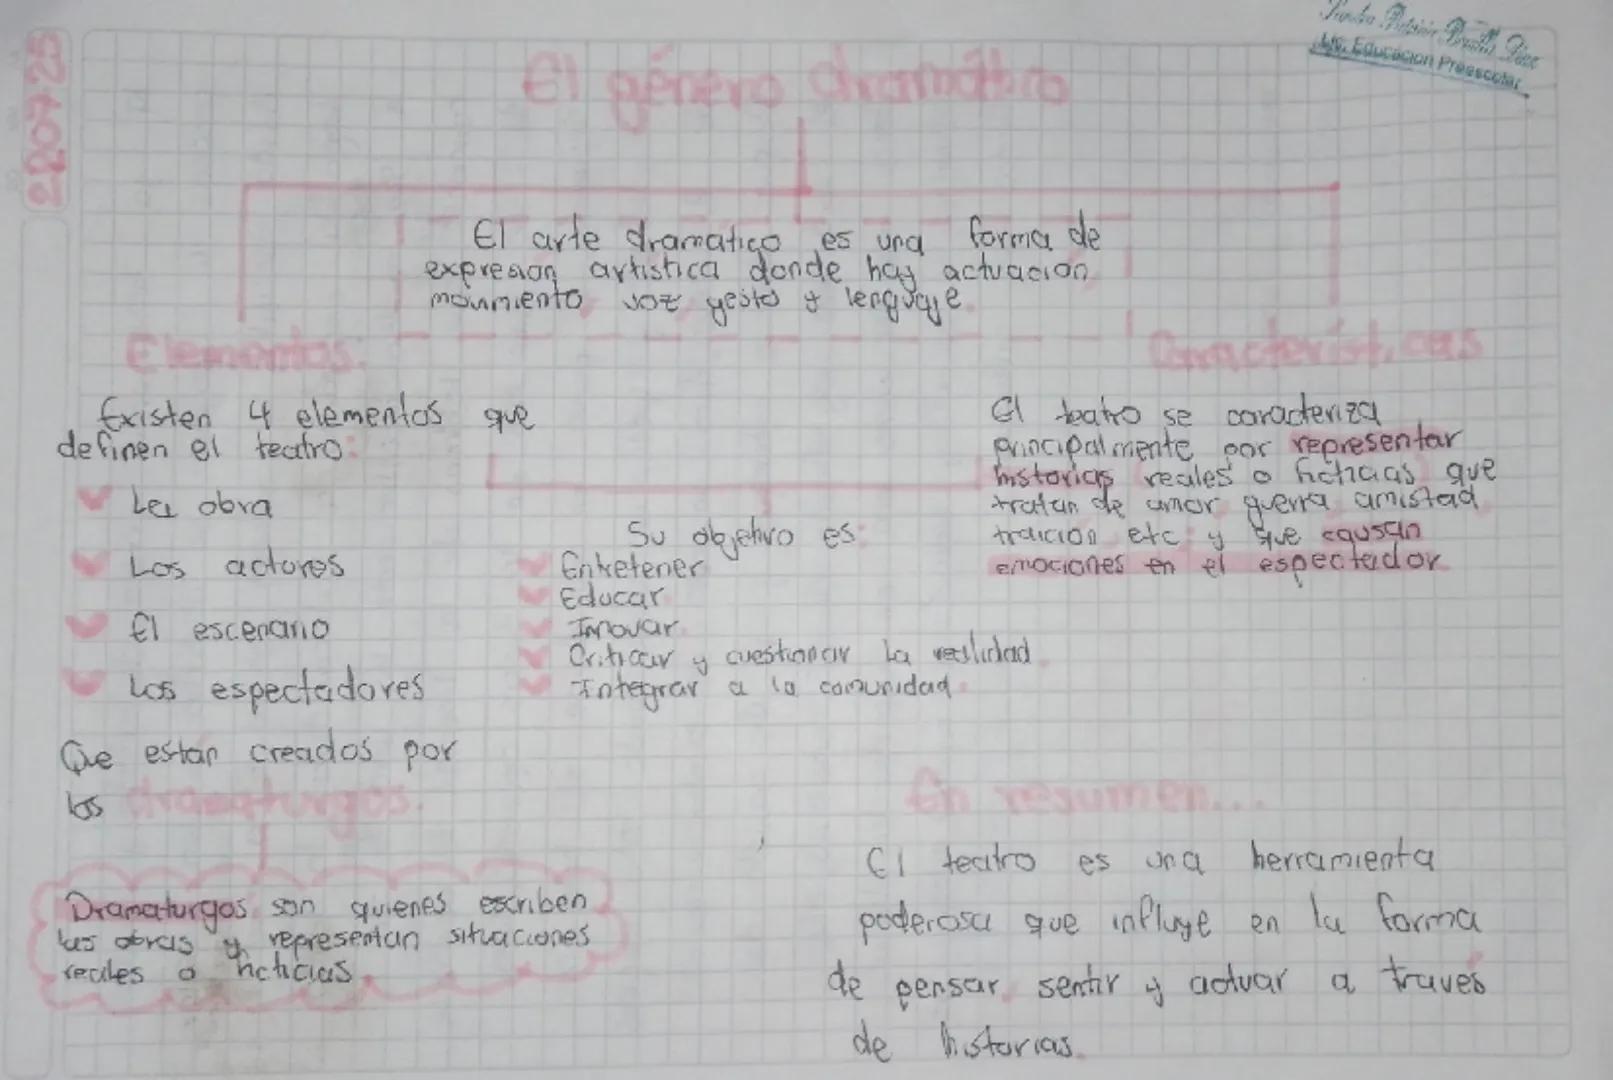 220725
Lic. Educación Preescolar
El género dramático
El arte dramatico es una forma de
expresion artistica donde hay actuacion
movimiento voz gesto y lenguaje.
Elementos:
Existen 4 elementos que
definen el teatro:
La obra
Los actores
El escenario
Los espectadores
Que estan creados por
los dramaturgos.
Dramaturgos son quienes escriben
las obras y representan situaciones
reales o ficticias.
Su objetivo es:
Entretener
Educar
Innovar
Criticar y cuestionar la realidad
Integrar a la comunidad
Características
El teatro se caracteriza
principalmente por representar
historias reales o ficticias que
tratan de amor guerra amistad
traicion etc y que causan
emociones en el espectador
En resumen...
El teatro es una herramienta
poderosa que influye en la forma
de pensar, sentir y actuar a través
de historias.